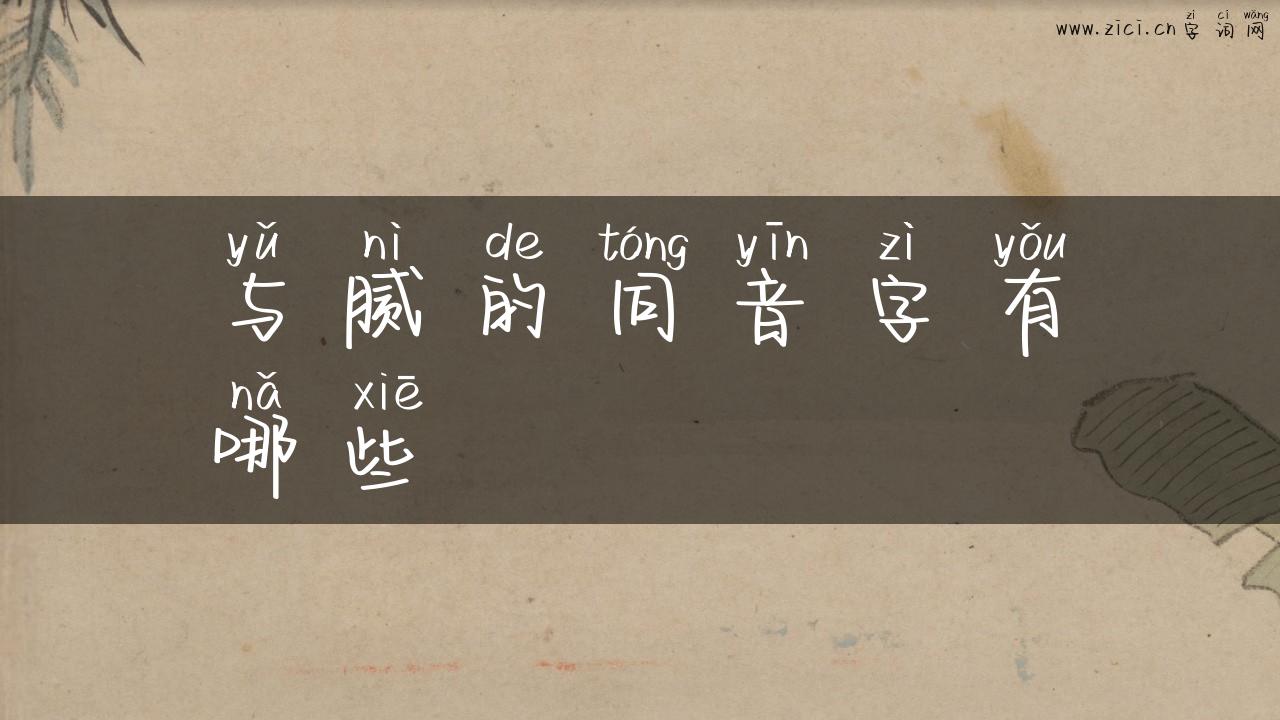 zì cí wǎng
www.zici.cn 字 词 网
yǔ nì de tóng yīn zì yǒu
与 腻 的 同 音 字 有
nǎ xiē
哪 些